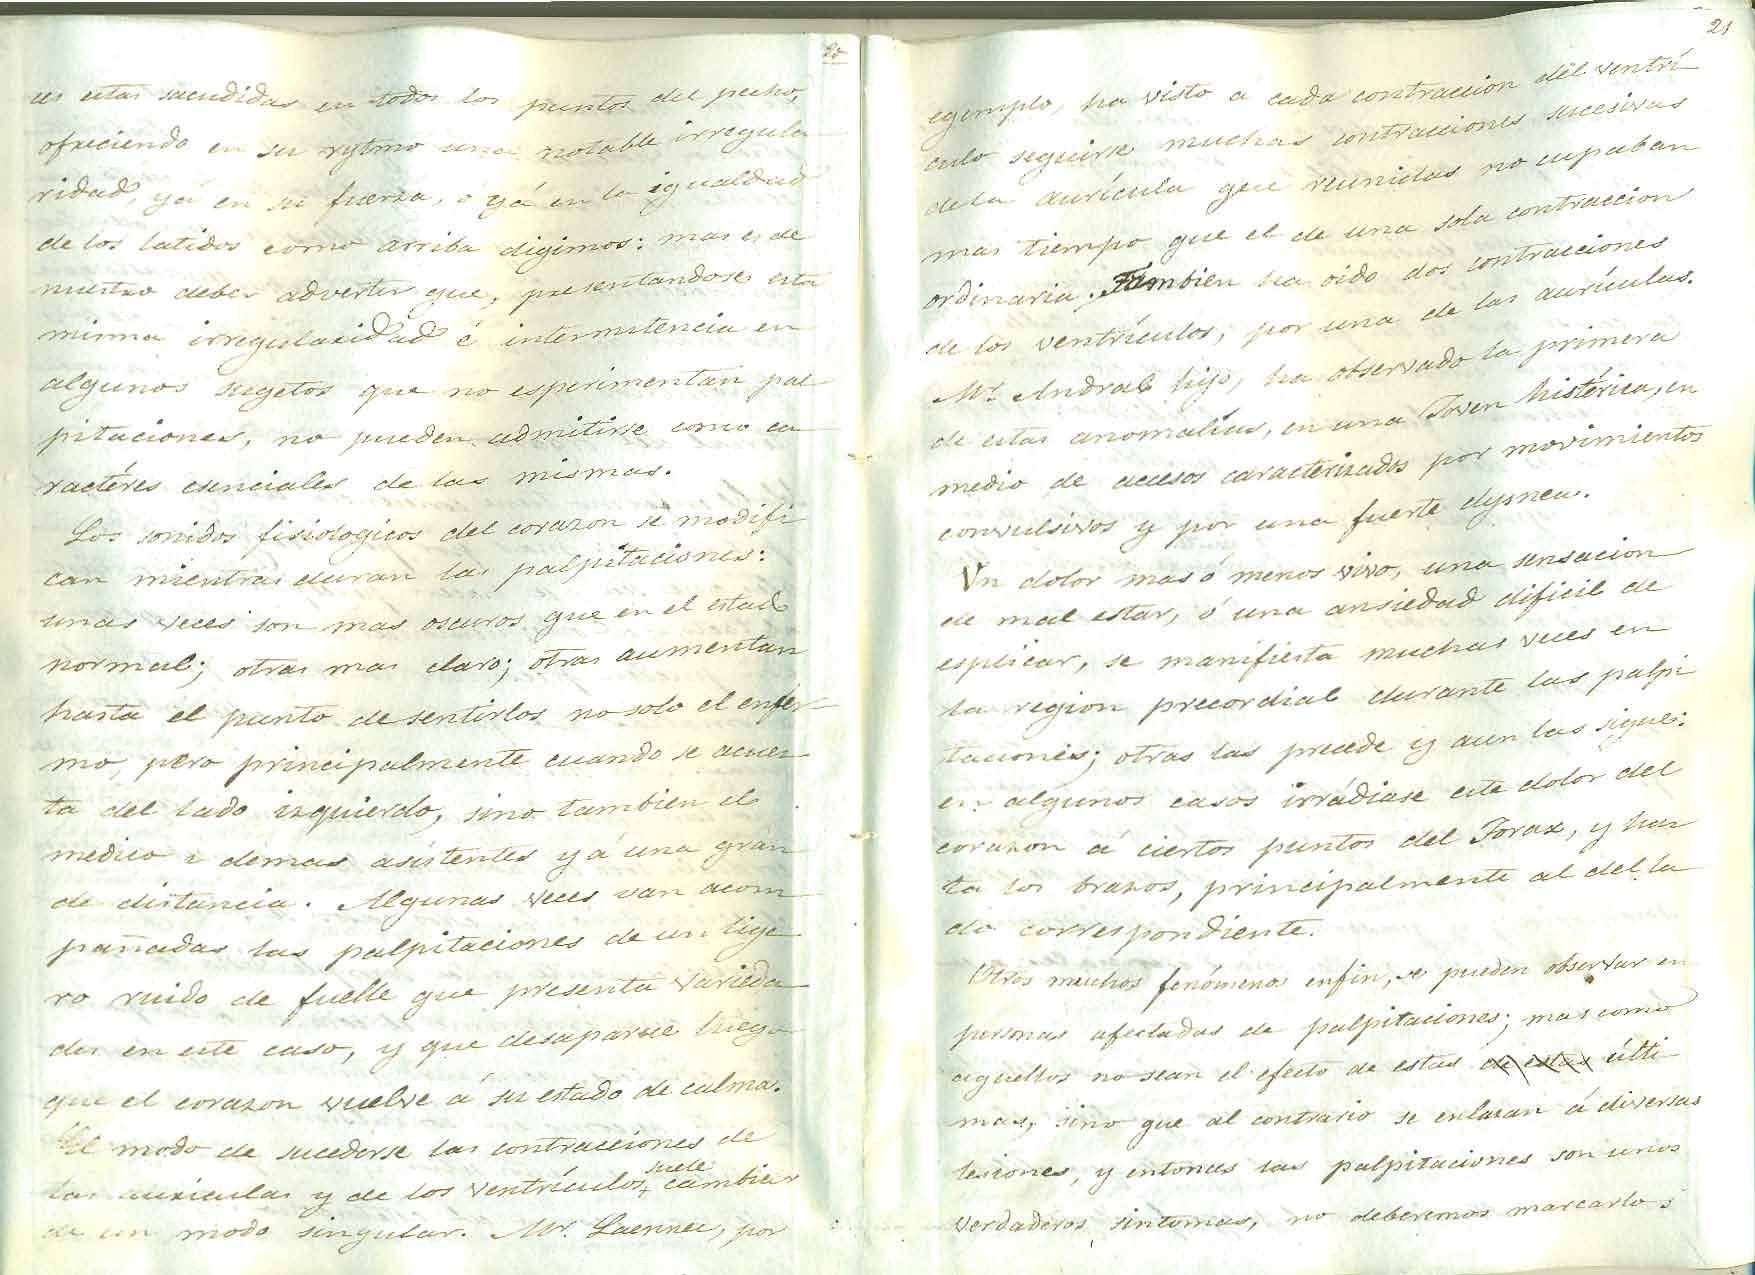 20
es estas sacudidas en todos los puntos del pecho,
ofreciendo en su rytmo una notable irregula
ridad, yá en su fuerza, ó yá en la igualdad
de los latidos como arriba digimos: mas es de
nuestro deber advertir que, presentandose esta
misma irregularidad é intermitencia en
algunos sugetos que no esperimentan pal
pitaciones, no pueden admitirse como ca
ractéres esenciales de las mismas.
Los sonidos fisiologicos del corazon se modifi
can mientras duran las palpitaciones:
unas veces son mas oscuros que en el estado
normal; otras mas claro; otras aumentan
hasta el punto de sentirlos no solo el enfer
mo, pero principalmente cuando se acues
ta del lado izquierdo, sino tambien el
medico i demas asistentes y á una gran
de distancia. Algunas veces van acom
pañadas las palpitaciones de un lige
ro ruido de fuelle que presenta varieda
des en este caso, y que desaparece luego
que el corazon vuelve á su estado de calma.
El modo de sucederse las contracciones de
suele
las auriculas y de los ventrículos + cambiar
de un modo singular. Mr. Laennec, por
21
egemplo, ha visto a cada contraccion del ventrí
culo seguirse muchas contracciones sucesivas
de la aurícula que reunidas no cupaban
mas tiempo que el de una sola contraccion
ordinaria. Tambien ha oido dos contracciones
de los ventrículos, por una de las aurículas.
Mr. Andral hijo, ha observado la primera
de estas anomalías, en una Joven histérica, en
medio de accesos caracterizados por movimientos
convulsivos y por una fuerte dysnea.
Un dolor mas ó menos vivo, una sensacion
de mal estar, ó una ansiedad dificil de
esplicar, se manifiesta muchas veces en
la region precordial durante las palpi
taciones; otras las precede y aun las sigue:
en algunos casos irrádiase este dolor del
corazon á ciertos puntos del Torax, y has
ta los brazos, principalmente al del la
do correspondiente.
Otros muchos fenómenos enfin, se pueden observar en
personas afectadas de palpitaciones; mas como
aquellos no sean el efecto de estas de estas últi
mas, sino que al contrario se enlazan á diversas
lesiones, y entonces las palpitaciones son unos
verdaderos sintomas, no deberemos marcarlos